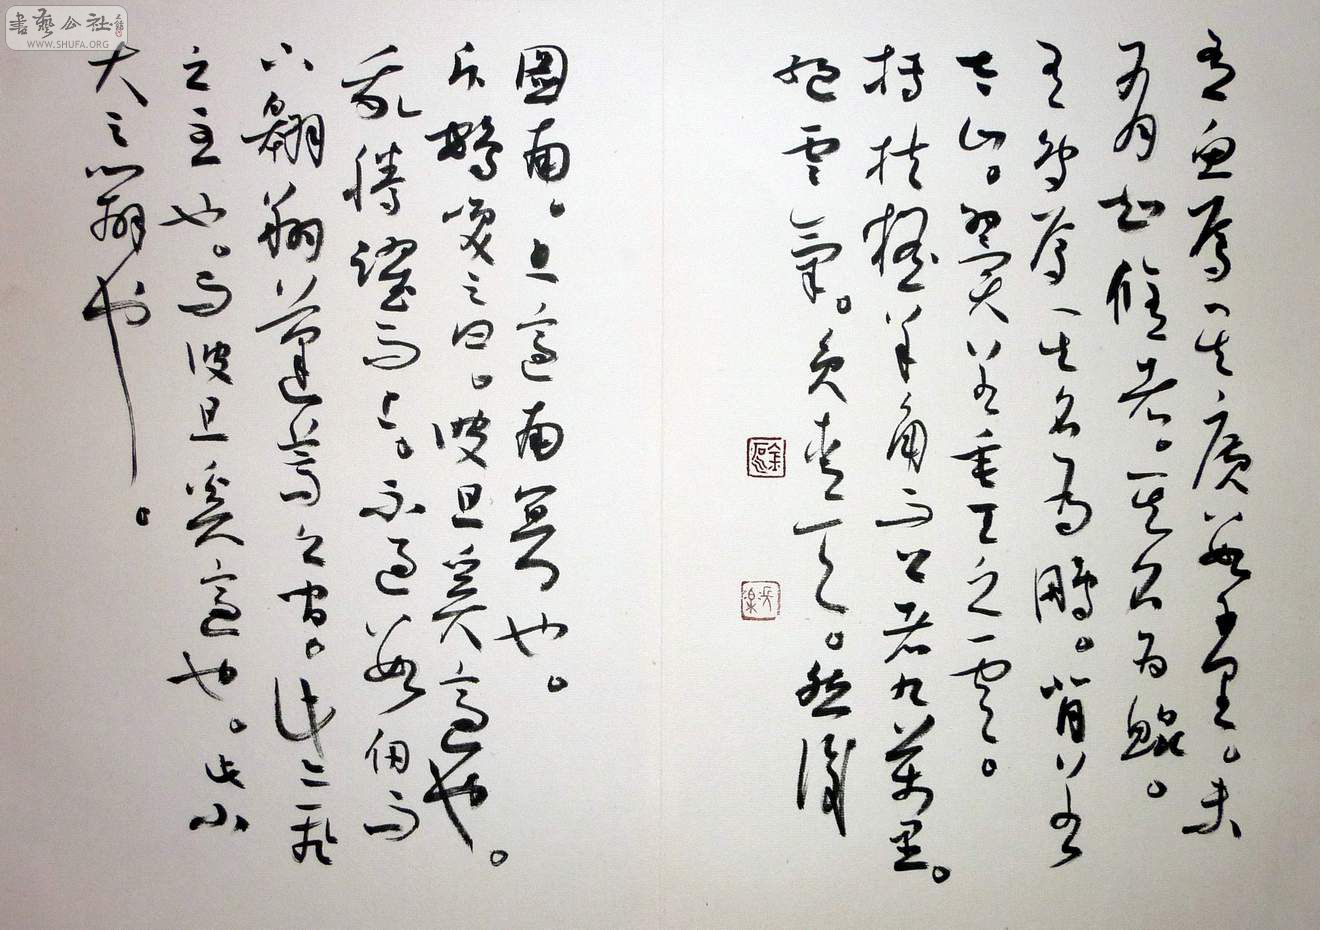 書藝公社
WWW.SHUFA.ORG
有魚焉其廣數千里。未
有知修者。其名為鯤。
有鳥焉其名為鵬。背若
太山。翼若垂天之雲。
摶扶搖羊角而上者九萬里。
絕雲氣。負青天。然後
圖南。且適南冥也。
斥鴳笑之曰。彼且奚適也。
我騰躍而上。不過數仞而
下翱翔蓬蒿之間。此亦飛
之至也。而彼且奚適也。此小
大之辯也。